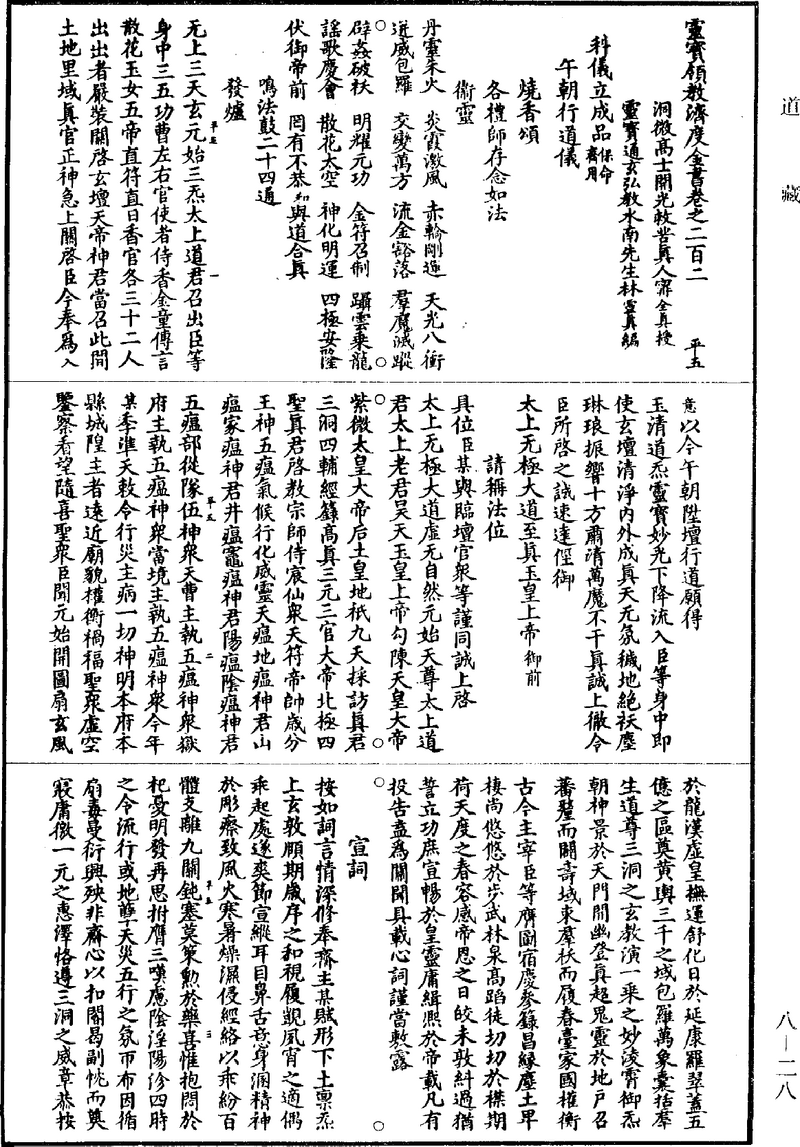 道藏
靈寶領教濟度金書卷之二百二 平五
洞微高士開光救苦真人甯全真授
靈寶通玄弘教水南先生林靈真編
科儀立成品保命齋用
午朝行道儀
燒香頌
各禮師存念如法
衛靈
丹靈朱火 炎霞激風 赤輪剛遄 天光八衝
迸威包羅 交變萬方 流金豁落 羣魔滅蹤
辟姦破袄 明耀元功 金符召制 躡雲乗龍
謠歌慶會 散花太空 神化明運 四極安隆
伏御帝前 罔有不恭 和與道合真
鳴法鼓二十四通
發爐
无上三天玄元始三炁太上道君召出臣等
身中三五功曹左右官使者侍香金童傳言
散花玉女五帝直符直日香官各三十二人
出出者嚴裝關啓玄壇天帝神君當召此間
土地里域真官正神急上關啓臣今奉爲入
意以今午朝陞壇行道願得
玉清道炁靈寶妙光下降流入臣等身中即
使玄壇清淨内外成真天无氛穢地絶袄塵
琳琅振響十方肅清萬魔不干真誠上徹令
臣所啓之誠速達俓御
太上无極大道至真玉皇上帝御前
請稱法位
具位臣某與臨壇官衆等謹同誠上啓
太上无極大道虚无自然元始天尊太上道
君太上老君昊天玉皇上帝勾陳天皇大帝
紫微太皇大帝后土皇地祇九天採訪真君
三洞四輔經籙高真三元三官大帝北極四
聖真君啓教宗師侍宸仙衆天符帝帥歲分
王神五瘟氣候行化威靈天瘟地瘟神君山
瘟家瘟神君井瘟竈瘟神君陽瘟陰瘟神君
五瘟部從隊伍神衆天曹主執五瘟神衆嶽
府主執五瘟神衆當境主執五瘟神衆今年
某季準天敕令行災主病一切神明本府本
縣城隍主者遠近廟貌權衡禍福聖衆虚空
鑒察看望隨喜聖衆臣聞元始開圖扇玄風
於龍漢虚皇撫運舒化日於延康羅翠蓋五
億之區奠黄輿三千之域包羅萬象囊括羣
生道尊三洞之玄教演一乗之妙淩霄御炁
朝神景於天門開幽登真超鬼靈於地戶召
蕃釐而闢壽域東羣袄而履春臺家國權衡
古今主宰臣等膺圖宿慶參籙昌緣塵土早
棲尚悠悠於步武林泉高蹈徒切切於襟期
荷天度之春容感帝恩之日皎未敦糾過猶
誓立功庶宣暢於皇靈庸緝熙於帝載凡有
投告盍爲關聞具載心詞謹當敷露
宣詞
按如詞言情深修奉齋主某賦形下土禀炁
上玄敦願期歲序之和視履覬風宵之適偶
乖起處遂爽節宣縱耳目鼻舌意身溷精神
於彫瘵致風火寒暑燥濕侵經絡以乖紛百
體支離九關鈍塞莫策勲於藥喜惟抱悶於
杞憂明發再思拊膺三嘆慮陰淫陽沴四時
之令流行或地孽天災五行之氛帀布因循
扇毒曼衍興殃非齋心以扣閽曷副忱而奠
寢庸徼一元之惠澤恪遵三洞之威章恭按
八一二八